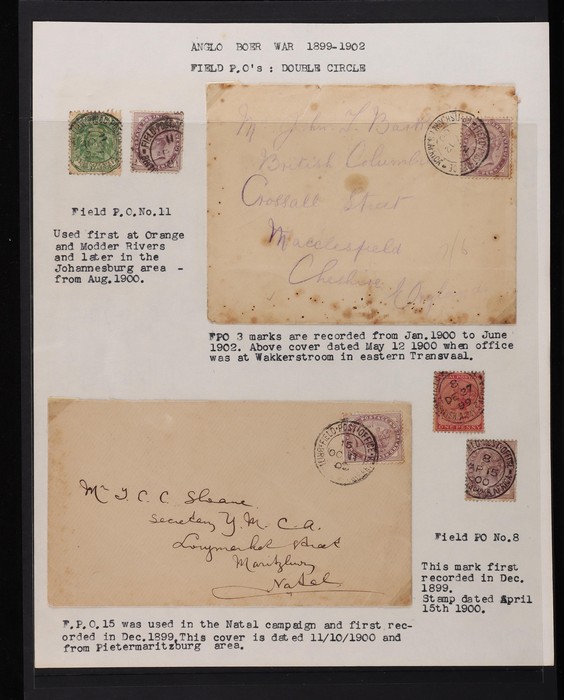 ANGLO BOER WAR 1899-1902
FIELD P.O's : DOUBLE CIRCLE
Field P.O.No.11
Used first at Orange
and Modder Rivers
and later in the
Johannesburg area -
from Aug.1900.
Mr John T.
British Columbia
Crossall Street
Macclesfield
Cheshire
FPO 3 marks are recorded from Jan.1900 to June
1902. Above cover dated May 12 1900 when office
was at Wakkerstroom in eastern Transvaal.
8
DE 27
99
ONE PENNY
FIELD·POST·OFFICE
15
OC 11
00
8
AP 15
00
Mr T. C. C. Sloane
Secretary Y. M. C. A.
Longmarket Street
Maritzburg
Natal
Field PO No.8
This mark first
recorded in Dec.
1899.
Stamp dated April
15th 1900.
F.P.O.15 was used in the Natal campaign and first rec-
orded in Dec.1899.This cover is dated 11/10/1900 and
from Pietermaritzburg area.